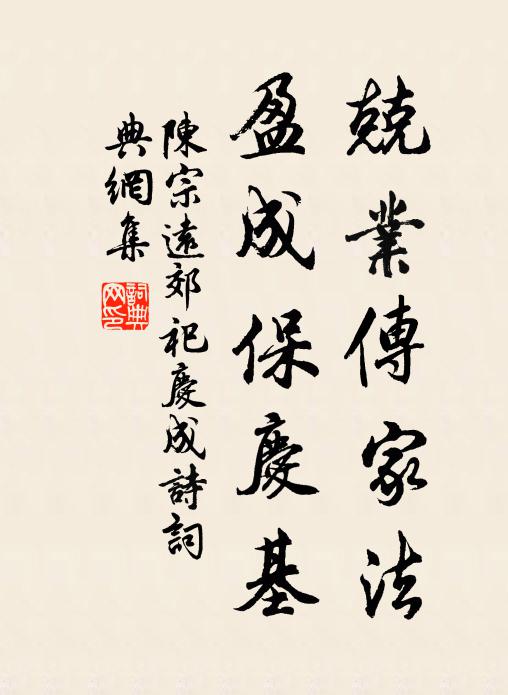 兢業傳家法
盈成保慶基
陳宗遠郊祀慶成詩詞
典網集
詞典網印